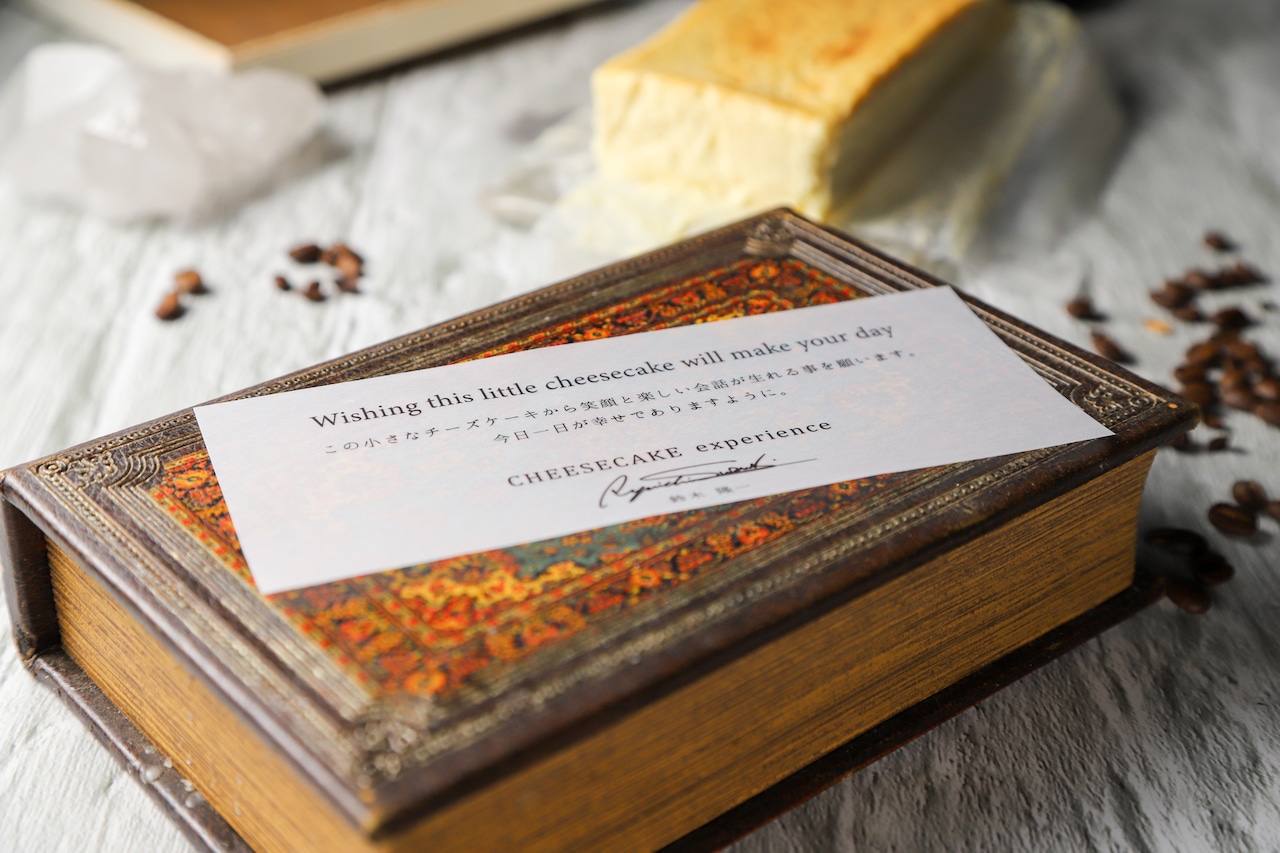 Wishing this little cheesecake will make your day
この小さなチーズケーキから笑顔と楽しい会話が生れる事を願います。
今日一日が幸せでありますように。
CHEESECAKE experience
鈴木 隆一